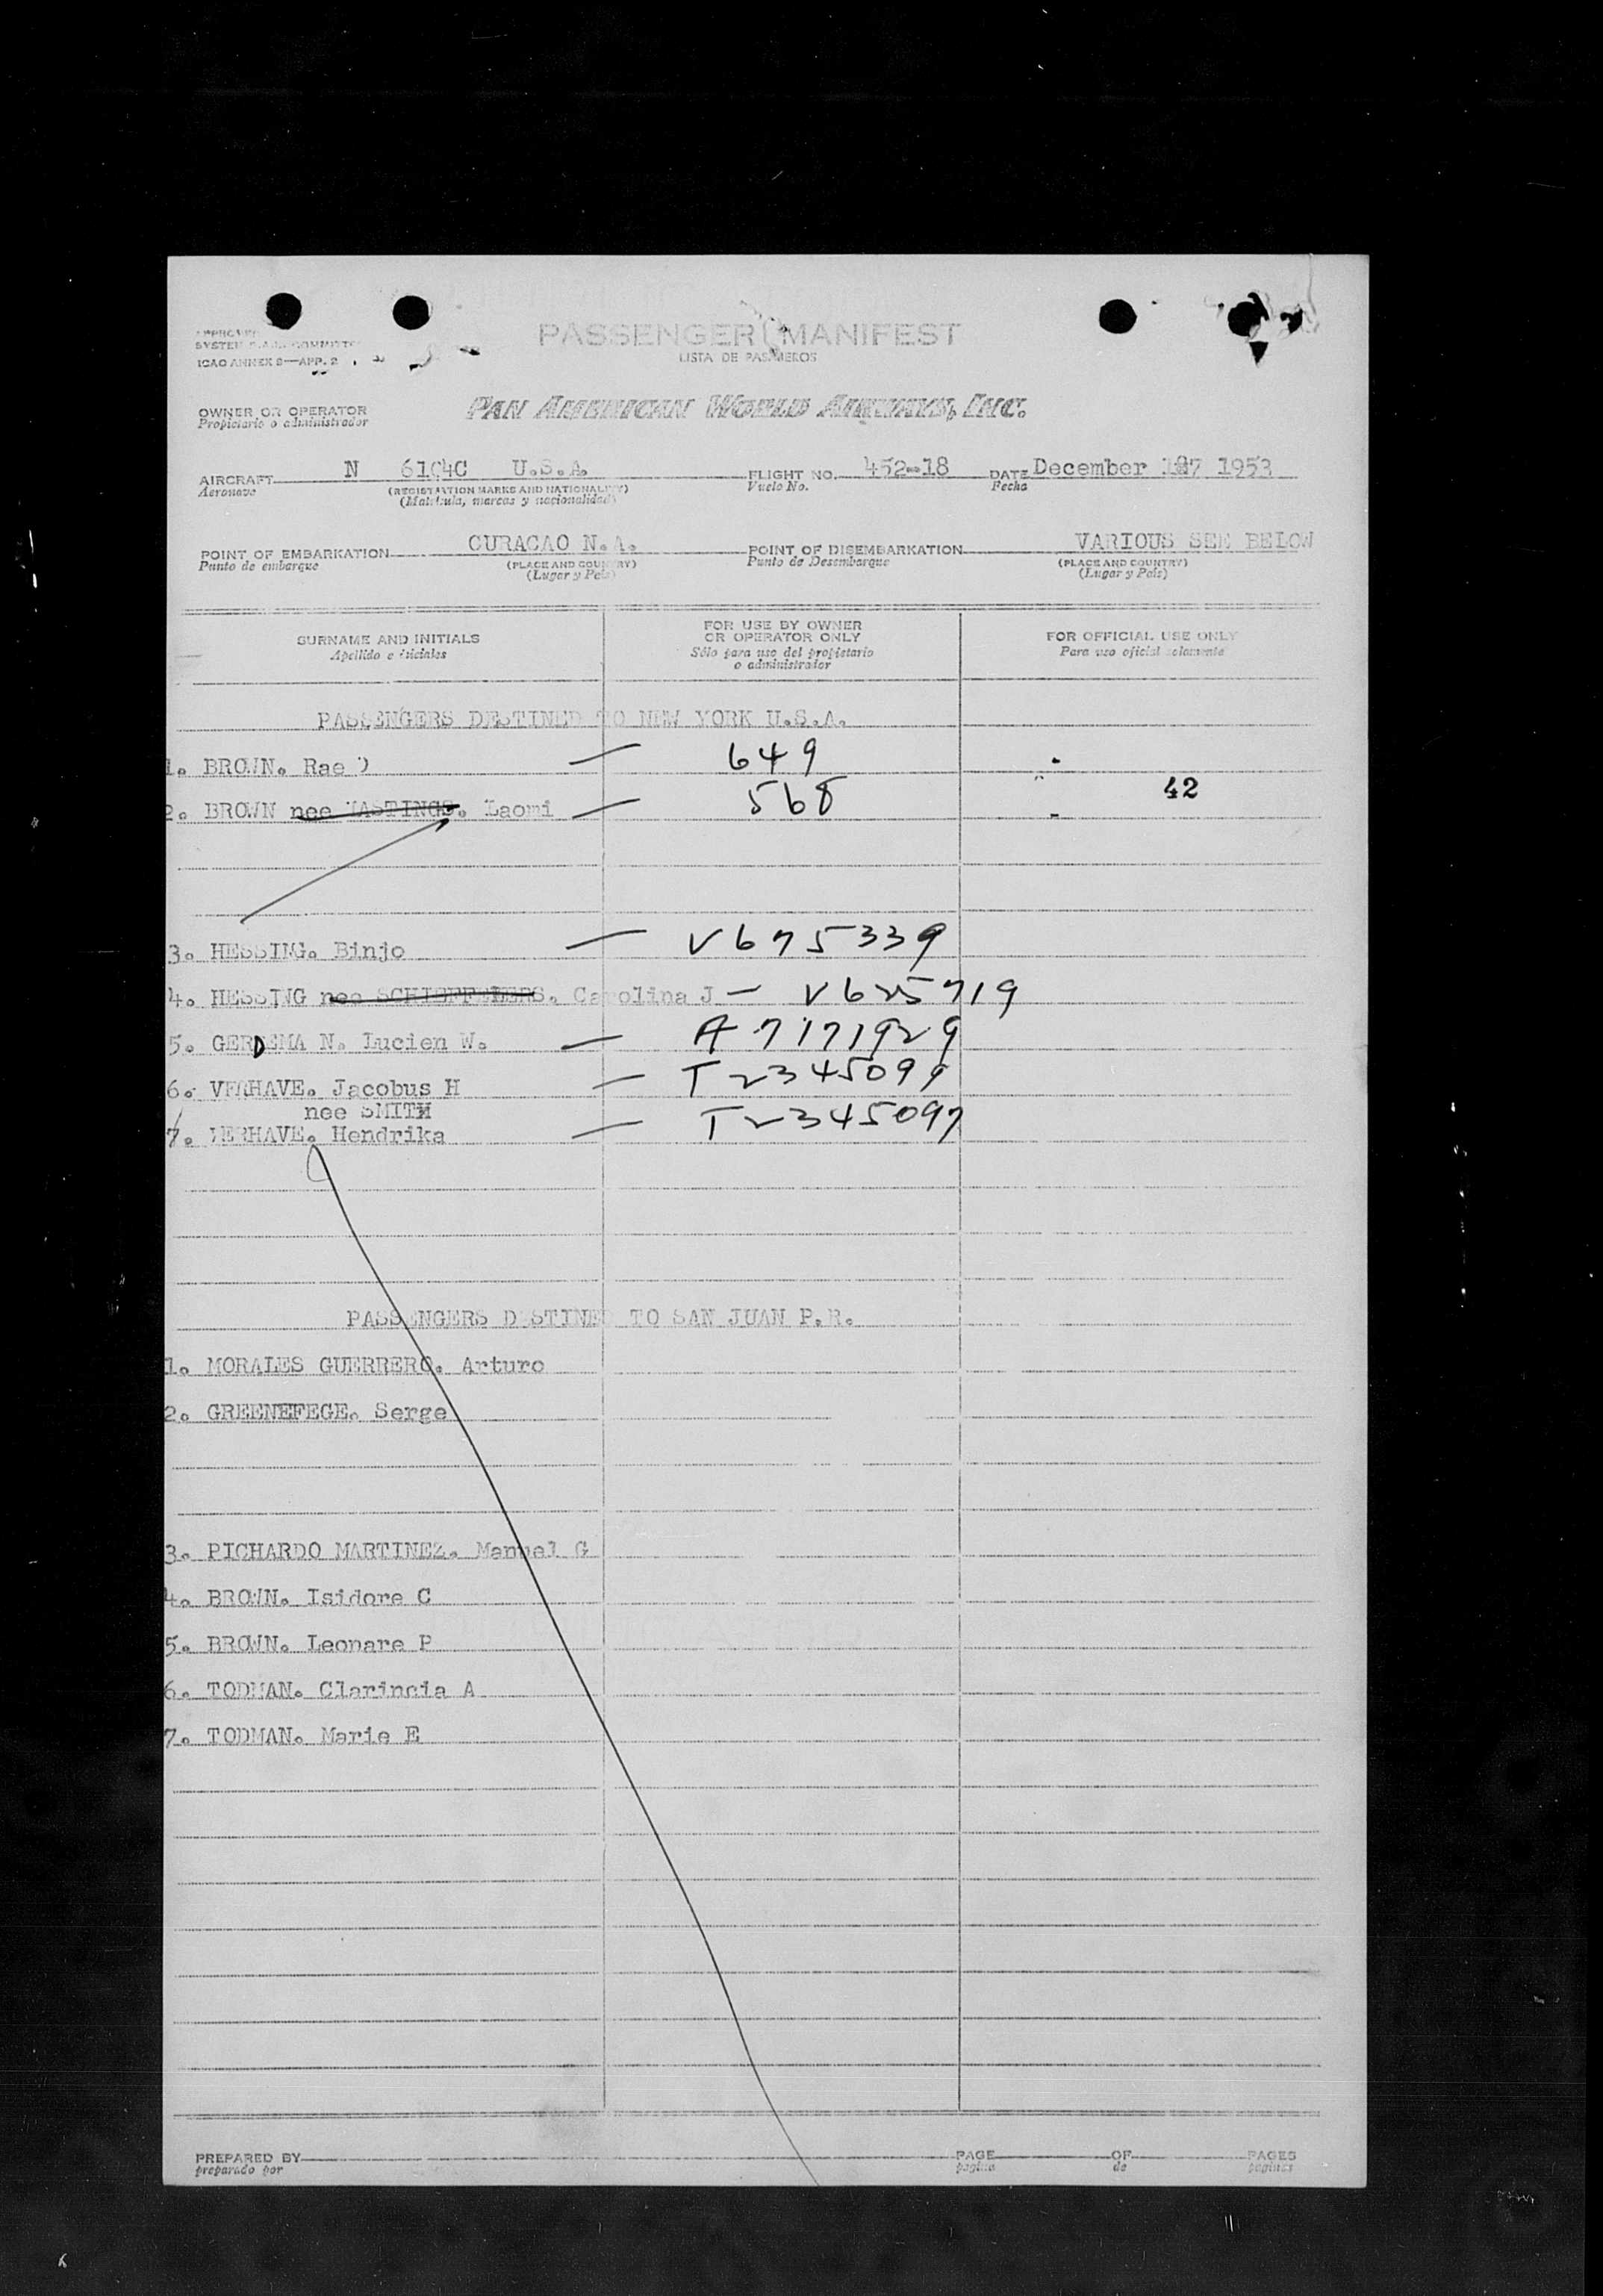 PASSENGER MANIFEST
LISTA DE PASAJEROS
ICAO ANNEX 9—APP. 2
OWNER OR OPERATOR
Propietario o administrador
PAN AMERICAN WORLD AIRWAYS, INC.
AIRCRAFT N 6104C U.S.A. FLIGHT NO. 452-18 DATE December 1953
Aeronave (REGISTRATION MARKS AND NATIONALITY) Vuelo No. Fecha
(Matrícula, marcas y nacionalidad)
POINT OF EMBARKATION CURACAO N.A. POINT OF DISEMBARKATION VARIOUS SEE BELOW
Punto de embarque (PLACE AND COUNTRY) Punto de Desembarque (PLACE AND COUNTRY)
(Lugar y País) (Lugar y País)
SURNAME AND INITIALS FOR USE BY OWNER OR OPERATOR ONLY FOR OFFICIAL USE ONLY
Apellido e iniciales Sólo para uso del propietario o administrador Para uso oficial solamente
PASSENGERS DESTINED TO NEW YORK U.S.A.
1. BROWN. Rae — 649
2. BROWN nee HASTINGS. Laomi — 568 42
3. HESSING. Binjo — V675339
4. HESSING nee. Carolina J — V625719
5. GERDEMA N. Lucien W. — A7171929
6. VERHAVE. Jacobus H — T2345099
nee SMITH
7. VERHAVE. Hendrika — T2345097
PASSENGERS DESTINED TO SAN JUAN P.R.
1. MORALES GUERRERO. Arturo
2. GREENEFEGE. Serge
3. PICHARDO MARTINEZ. Manuel G
4. BROWN. Isidore C
5. BROWN. Leonare P
6. TODMAN. Clarincia A
7. TODMAN. Marie E
PREPARED BY PAGE OF PAGES
preparado por pagina de paginas